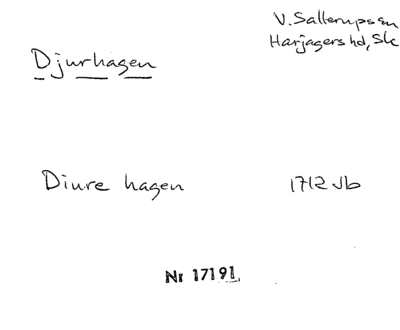 V. Sallerups sn
Djurhagen
Harjagers hd, Sk
Diure hagen 1712 Jb
Nr 17191.